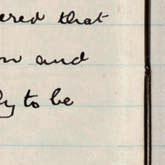 ered that
and
to be